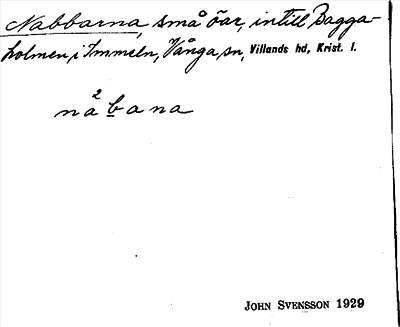 Nabbarna, små öar, intill Bagga-
holmen, i Immeln, Vånga sn, Villands hd, Krist. l.
2
nåbana
JOHN SVENSSON 1929